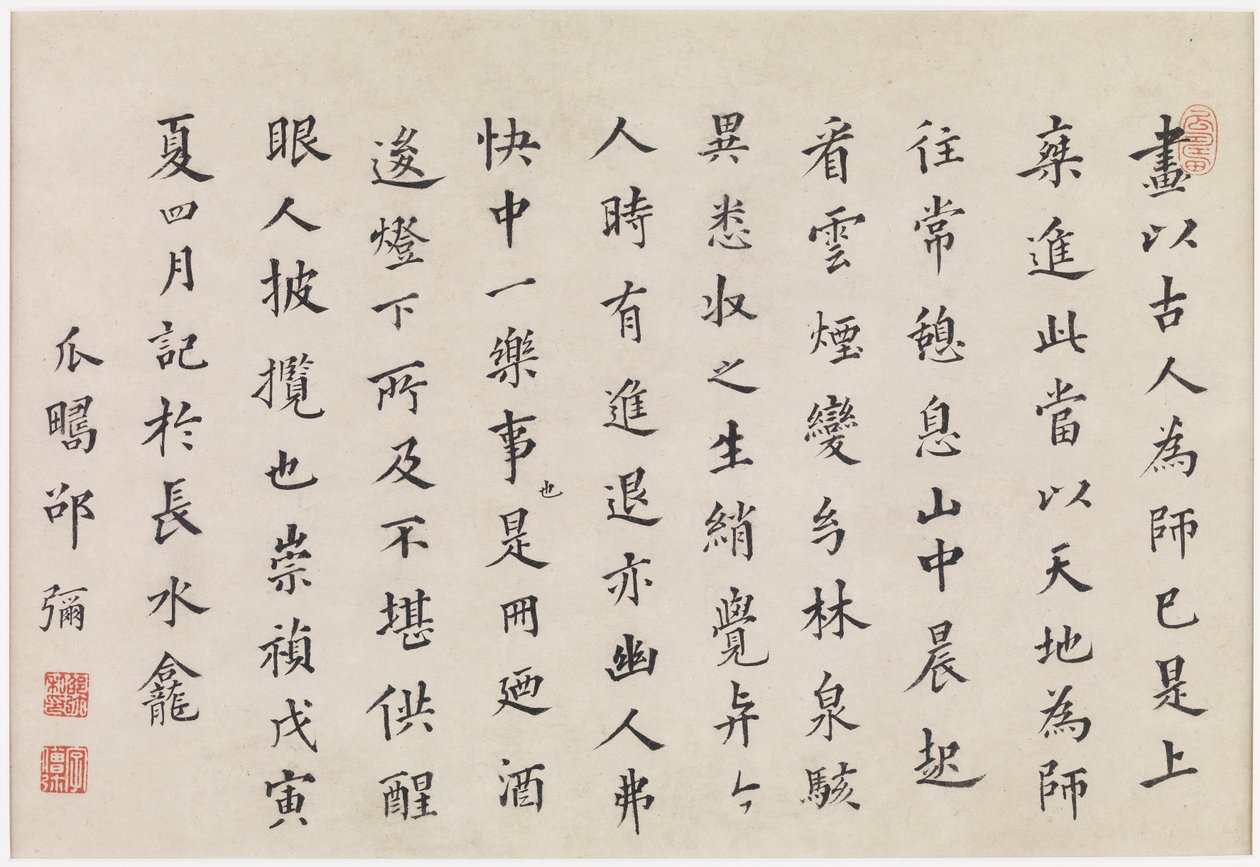 畫以古人為師已是上
椉進此當以天地為師
往常憩息山中晨起
看雲煙變兮林泉駭
異悉收之生綃覺與今
人時有進退亦幽人弗
快中一樂事也是冊廼酒
後燈下所及不堪供醒
眼人披攬也崇禎戊寅
夏四月記於長水龕
瓜疇邵彌